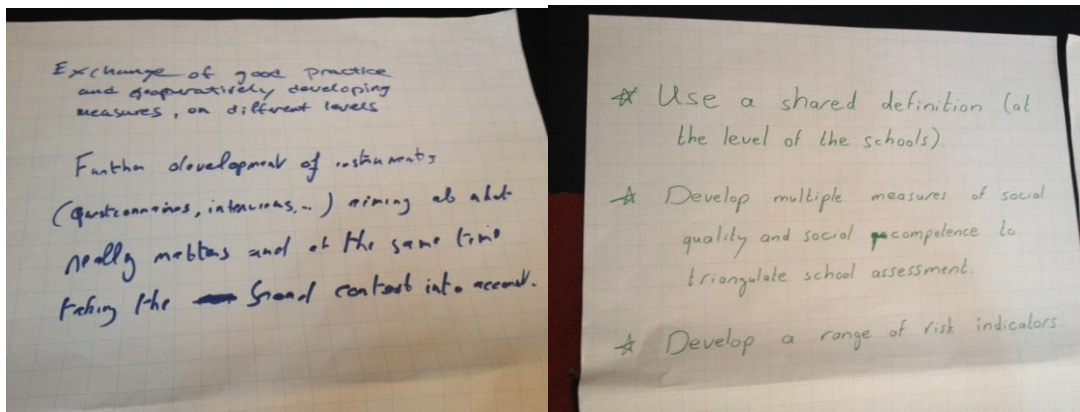 Exchange of good practice
and cooperatively developing
measures, on different levels
Further development of instruments
(questionnaires, interviews, ...) aiming at what
really matters and at the same time
taking the broad context into account.
☆ Use a shared definition (at
the level of the schools)
☆ Develop multiple measures of social
quality and social competence to
triangulate school assessment.
☆ Develop a range of risk indicators.